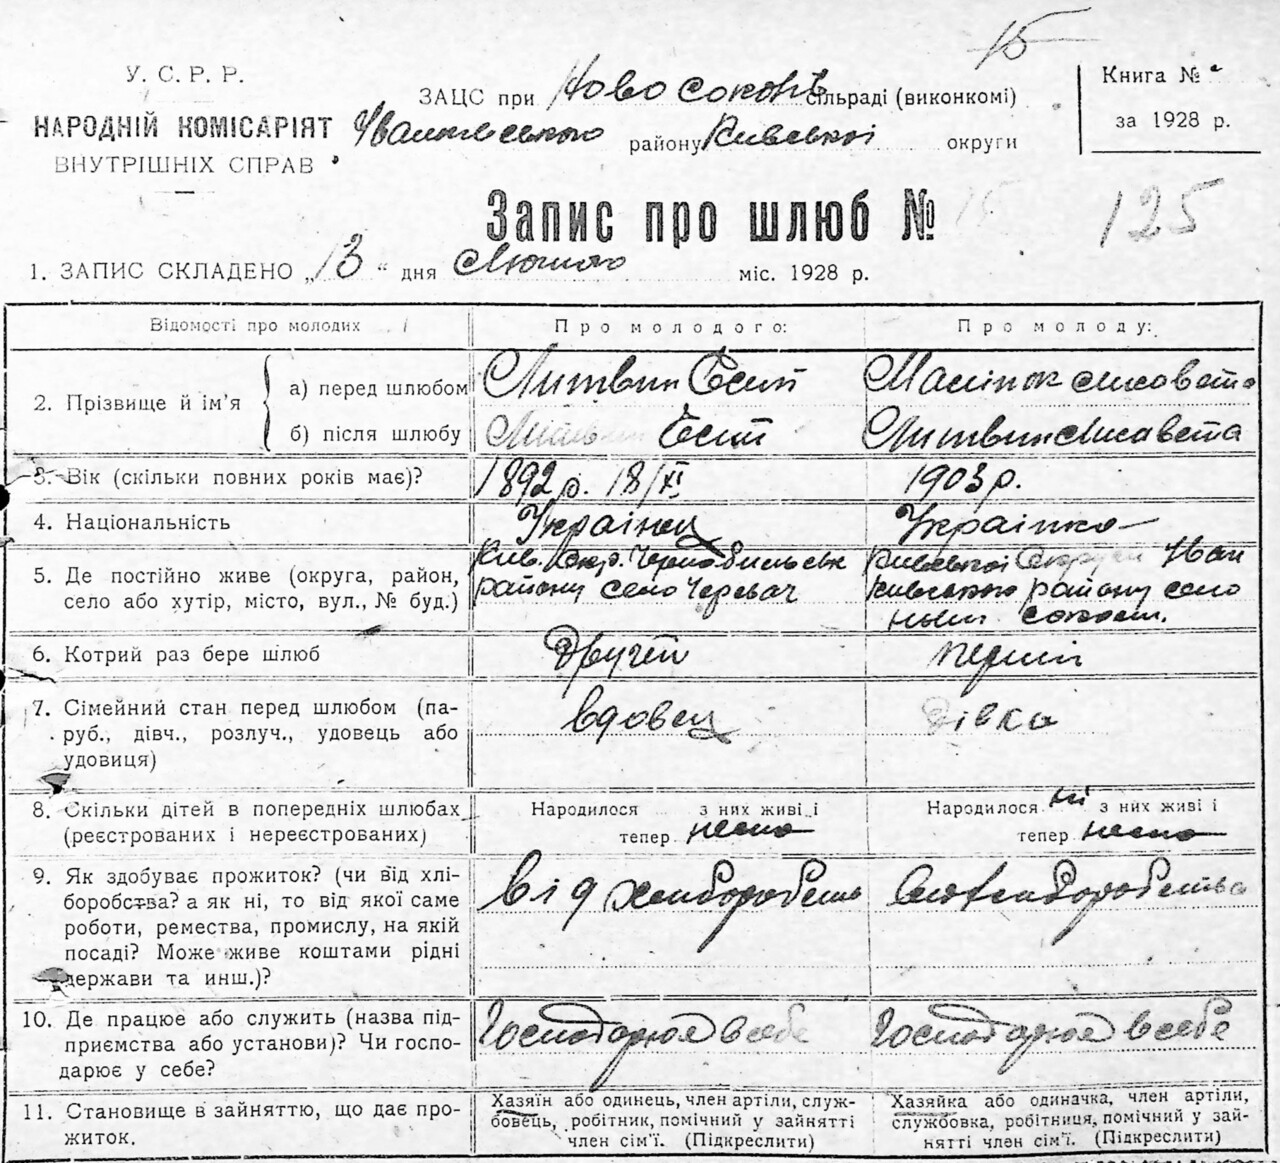 15
У. С. Р. Р.
НАРОДНІЙ КОМІСАРІЯТ
ВНУТРІШНІХ СПРАВ
ЗАЦС при Ново соколь сільраді (виконкомі)
Іванківського району Київської округи
Книга №
за 1928 р.
Запис про шлюб № 15
125
1. ЗАПИС СКЛАДЕНО „13“ дня Лютого міс. 1928 р.
Відомості про молодих
Про молодого:
Про молоду:
2. Прізвище й ім'я
а) перед шлюбом
Литвин Єсип
Лисавета
б) після шлюбу
Литвин Єсип
Литвин Лисавета
3. Вік (скільки повних років має)?
1892 р. 18/XI
1903 р.
4. Національність
Українец
Українка
5. Де постійно живе (округа, район,
село або хутір, місто, вул., № буд.)
Київ. Окр. Чорнобильськ
району село Черевач
Київської Округи Іван
ківського району село
Нові Соколи.
6. Котрий раз бере шлюб
Другей
перший
7. Сімейний стан перед шлюбом (па-
руб., дівч., розлуч., удовець або
удовиця)
вдовец
дівка
8. Скільки дітей в попередніх шлюбах
(реєстрованих і нереєстрованих)
Народилося з них живі і
тепер нема
Народилося ні з них живі і
тепер нема
9. Як здобуває прожиток? (чи від хлі-
боробства? а як ні, то від якої саме
роботи, ремества, промислу, на якій
посаді? Може живе коштами рідні
держави та инш.)?
від хлиборобств
хлиборобства
10. Де працює або служить (назва під-
приємства або установи)? Чи госпо-
дарює у себе?
Господарює в себе
Господарює в себе
11. Становище в зайняттю, що дає про-
житок.
Хазяїн або одинець, член артілі, служ-
бовець, робітник, помічний у зайнятті
член сім'ї. (Підкреслити)
Хазяйка або одиначка, член артілі,
службовка, робітниця, помічний у зай-
нятті член сім'ї. (Підкреслити)